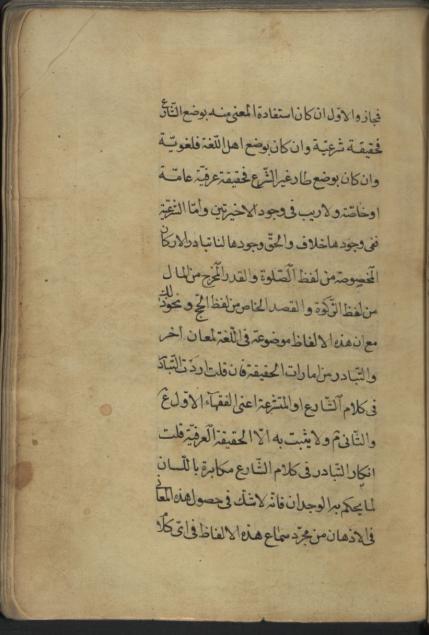 فمجاز والاول ان كان استفادة المعنى منه بوضع الشارع
فحقيقة شرعيّة وان كان بوضع اهل اللّغة فلغويّة
وان كان بوضع طار غير الشّرع فحقيقة عرفيّة عامّة
او خاصّة ولا ريب فى وجود الاخيرتين وامّا الشرعيّة
ففى وجودها خلاف والحقّ وجودها لنا تبادر الاركان
المخصوصة من لفظ الصّلوة والقدر المخرج من المال
من لفظ الزّكوة والقصد الخاص من لفظ الحج ونحو ذلك
مع ان هذه الالفاظ موضوعة فى اللّغة لمعان اخر
والتّبادر من امارات الحقيقة فان قلت اردت التبادر
فى كلام الشّارع او المتشرعة اعنى الفقهآء الاول م
والثانى م ولا يثبت به الّا الحقيقة العرفيّة قلت
انكار التبادر فى كلام الشّارع مكابرة باللّسان
لما يحكم به الوجدان فانّه لا شك فى حصول هذه المعانى
فى الاذهان من مجرّد سماع هذه الالفاظ فى اى كلام